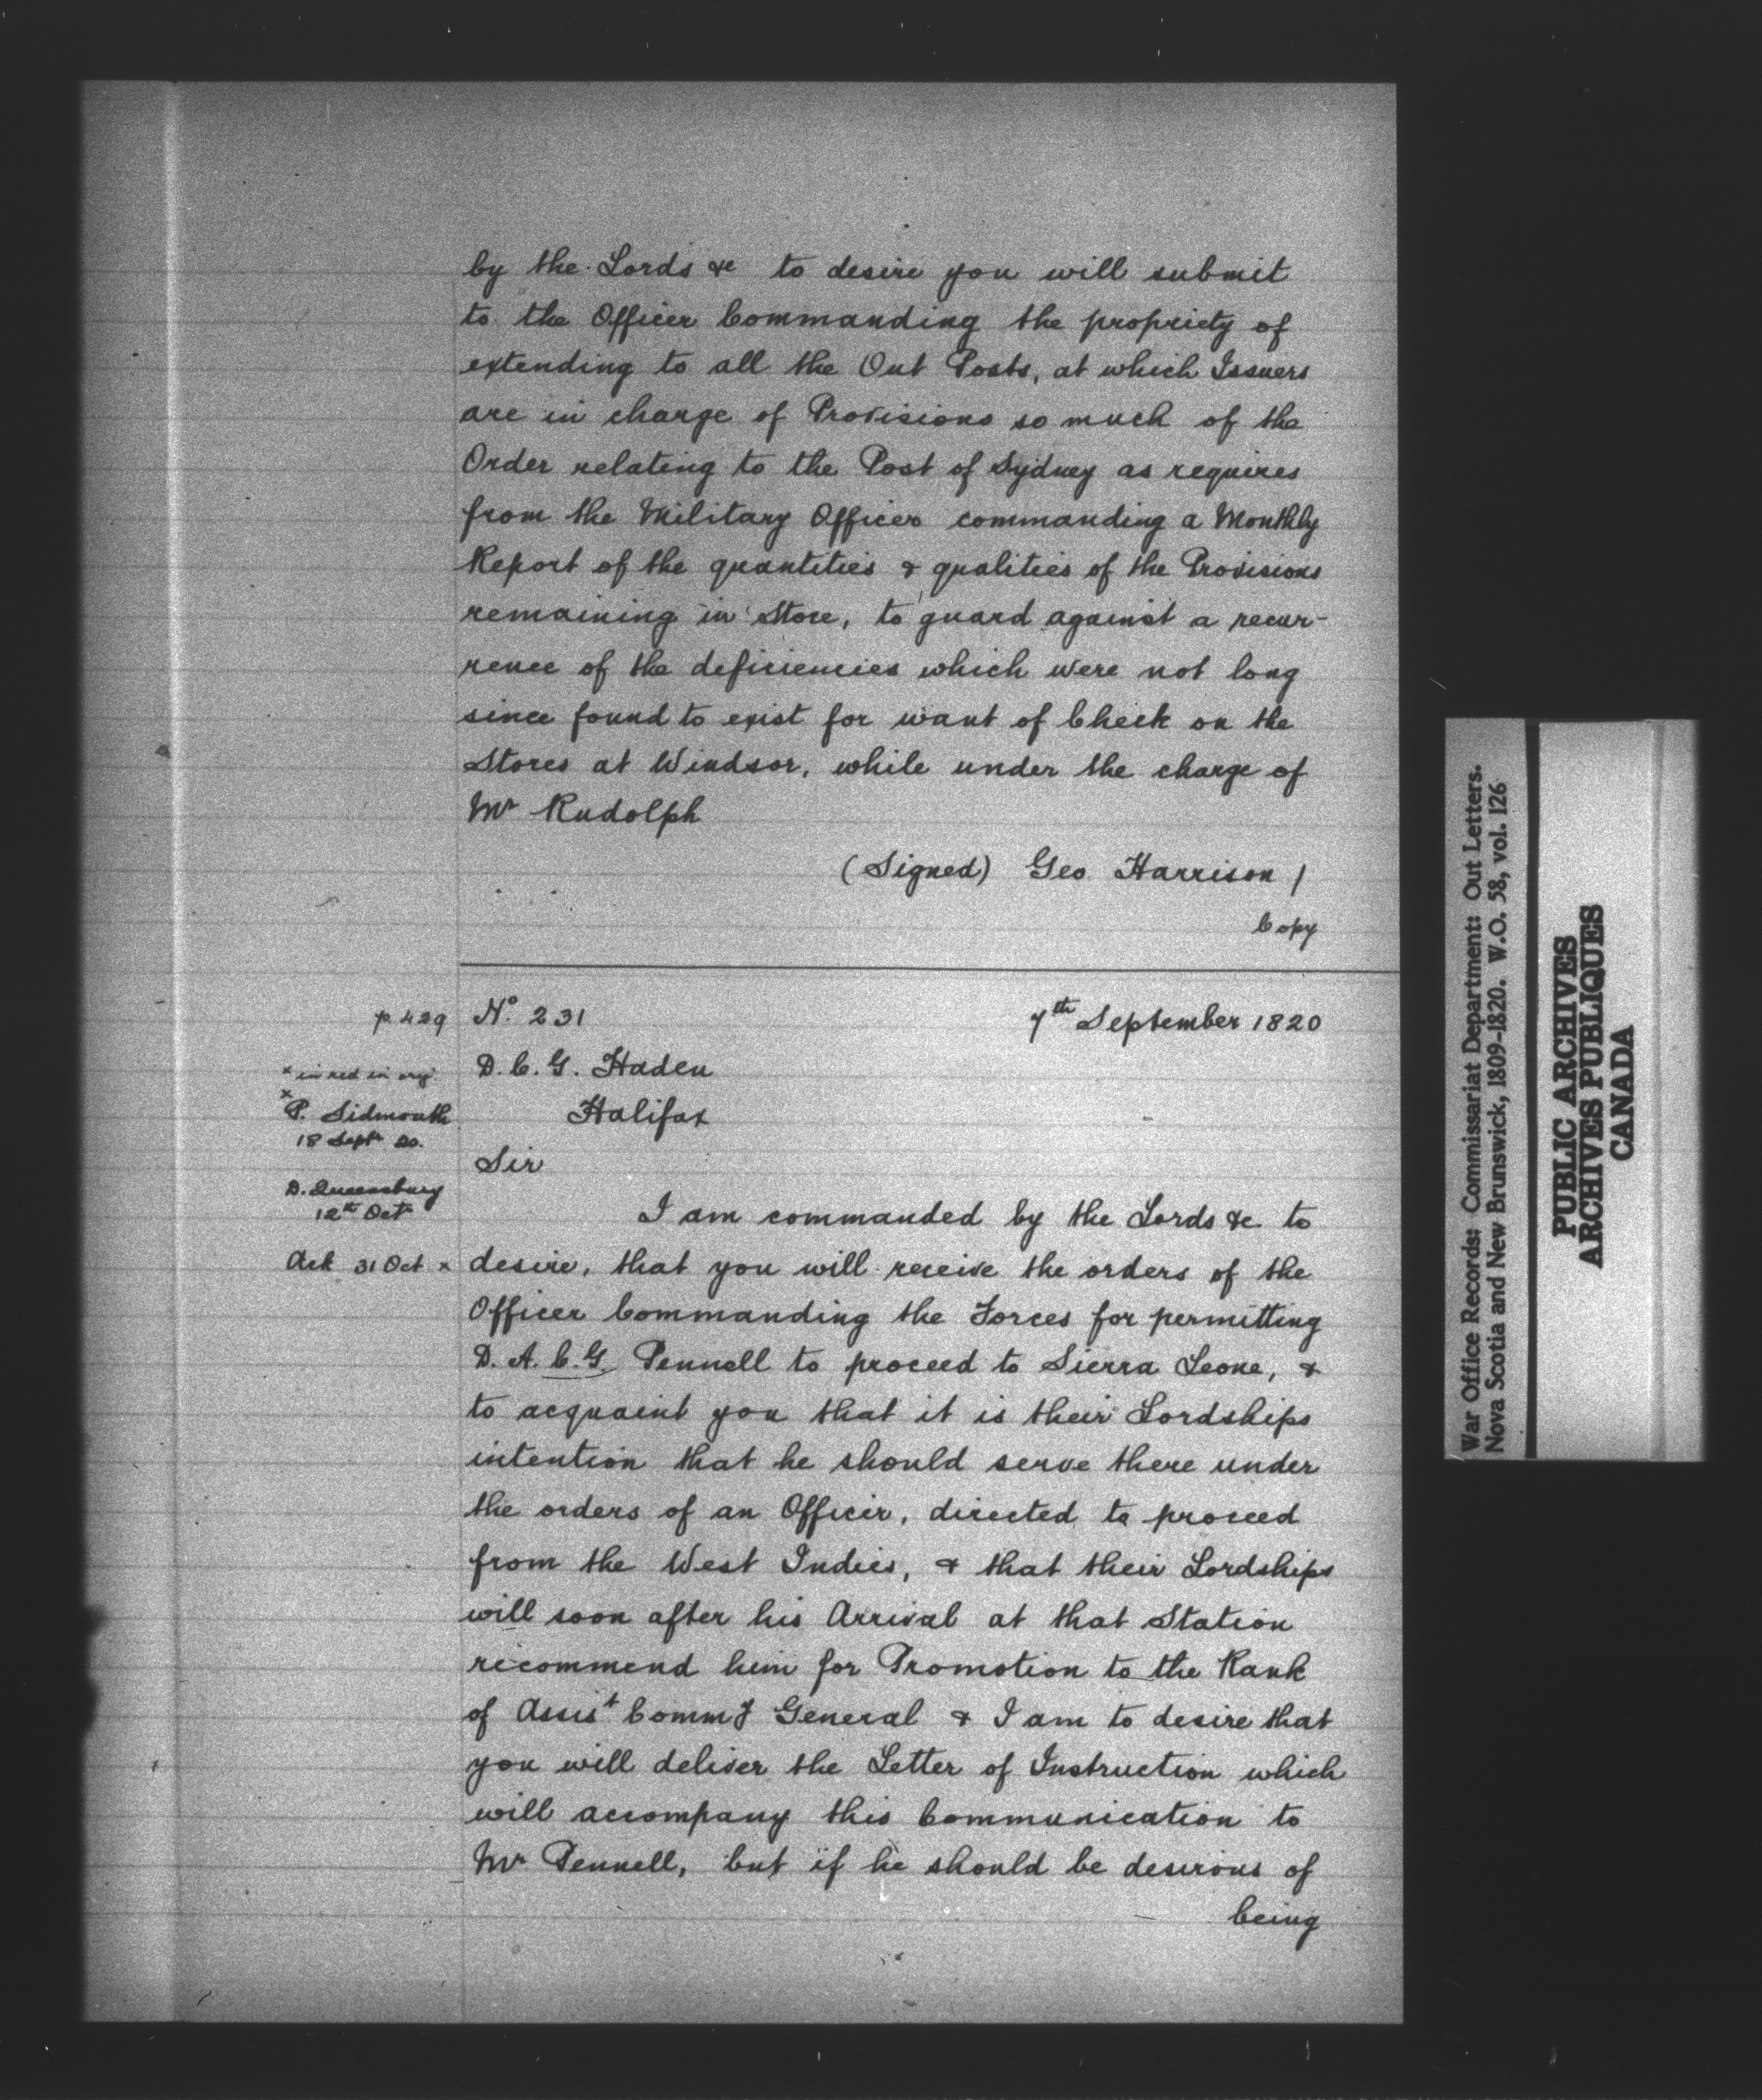 by the Lords &c to desire you will submit
to the Officer Commanding the propriety of
extending to all the Out Posts, at which Issuers
are in charge of Provisions so much of the
Order relating to the Post of Sydney as requires
from the Military Officer commanding a Monthly
Report of the quantities & qualities of the Provisions
remaining in Store, to guard against a recur-
rence of the deficiencies which were not long
since found to exist for want of Check on the
Stores at Windsor, while under the charge of
Mr Rudolph
(Signed) Geo Harrison /
Copy
p 429 No. 231 7th September 1820
x in red in orig.
D. C. G. Haden
x P. Sidmouth
18 Sept 20.
Halifax
Sir
D. Queensbury
12th Oct
I am commanded by the Lords &c to
Ack 31 Oct x
desire, that you will receive the orders of the
Officer Commanding the Forces for permitting
D. A. C. G Pennell to proceed to Sierra Leone, &
to acquaint you that it is their Lordships
intention that he should serve there under
the orders of an Officer, directed to proceed
from the West Indies, & that their Lordships
will soon after his Arrival at that Station
recommend him for Promotion to the Rank
of Assist Commy General & I am to desire that
you will deliver the Letter of Instruction which
will accompany this Communication to
Mr Pennell, but if he should be desirous of
being
War Office Records: Commissariat Department: Out Letters.
Nova Scotia and New Brunswick, 1809-1820. W.O. 58, vol. 126
PUBLIC ARCHIVES
ARCHIVES PUBLIQUES
CANADA